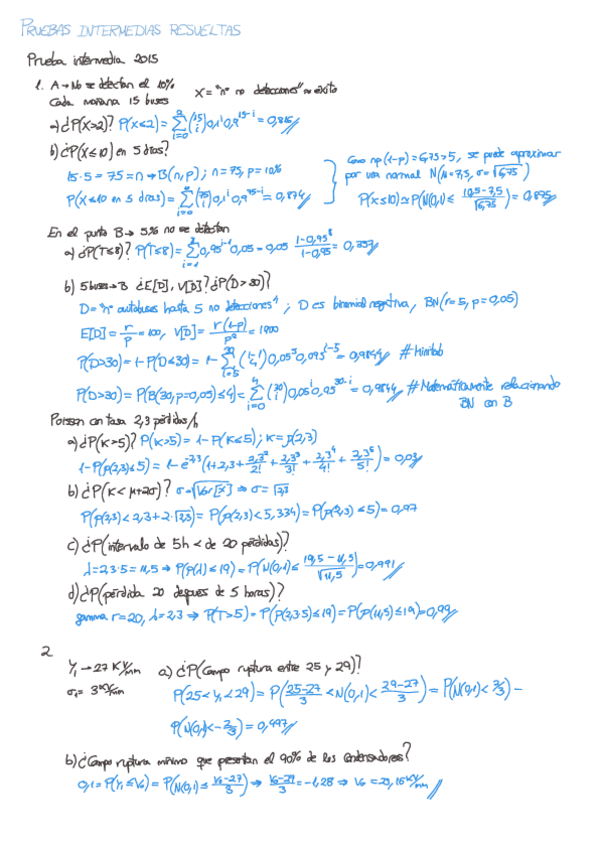 PRUEBAS INTERMEDIAS RESUELTAS
Prueba intermedia 2015
1. A → No se detectan el 10%
Cada mañana 15 buses
X = "nº no detecciones" no éxito
a) ¿P(X>2)? P(X≤2) = Σ_{i=0}^{2} (15 i) 0,1^i 0,9^{15-i} = 0,816
b) ¿P(X≤10) en 5 días?
15·5 = 75 = n → B(n,p); n=75, p=10%
P(X≤10 en 5 días) = Σ (75 i) 0,1^i 0,9^{75-i} = 0,874
Como np(1-p) = 6,75 > 5, se puede aproximar
por una normal N(μ=7,5, σ=√6,75)
P(X≤10) ≃ P(N(0,1) ≤ (10,5-7,5)/√6,75) = 0,875
En el punto B → 5% no se detectan
a) ¿P(T≤8)? P(T≤8) = Σ_{i=1}^{8} 0,95^{i-1} 0,05 = 0,05 (1-0,95^8)/(1-0,95) = 0,337
b) 5 buses → B ¿E[D], V[D]? ¿P(D>30)?
D = "nº autobuses hasta 5 no detecciones"; D es binomial negativa, BN(r=5, p=0,05)
E[D] = r/p = 100, V[D] = r(1-p)/p² = 1900
P(D>30) = 1-P(D≤30) = 1- Σ_{i=5}^{30} (i-1 4) 0,05^5 0,095^{i-5} = 0,9844 # Minitab
P(D>30) = P(B(30, p=0,05) ≤ 4) = Σ_{i=0}^{4} (30 i) 0,05^i 0,95^{30-i} = 0,9844 # Matemáticamente relacionando
BN con B
Poisson con tasa 2,3 pérdidas/h
a) ¿P(K>5)? P(K>5) = 1-P(K≤5); K = p(2,3)
1-P(p(2,3)≤5) = 1-e^{-2,3}(1+2,3+2,3²/2!+2,3³/3!+2,3⁴/4!+2,3⁵/5!) = 0,03
b) ¿P(K<μ+2σ)? σ=√Var[X] → σ=√2,3
P(p(2,3)<2,3+2·√2,3) = P(p(2,3)<5,334) = P(p(2,3)≤5) = 0,97
c) ¿P(intervalo de 5h < de 20 pérdidas)?
λ=2,3·5=11,5 → P(p(λ)≤19) = P(N(0,1)≤(19,5-11,5)/√11,5) = 0,991
d) ¿P(pérdida 20 despues de 5 horas)?
gamma r=20, λ=2,3 → P(T>5) = P(P(2,3·5)≤19) = P(p(11,5)≤19) = 0,99
2.
Y₁ → 27 KV/mm
σ₁ = 3 KV/mm
a) ¿P(Campo ruptura entre 25 y 29)?
P(25<Y₁<29) = P((25-27)/3 < N(0,1) < (29-27)/3) = P(N(0,1)<2/3) -
P(N(0,1)<-2/3) = 0,497
b) ¿Campo ruptura mínimo que presentan el 90% de los condensadores?
0,1 = P(Y₁≤V₀) = P(N(0,1)≤(V₀-27)/3) → (V₀-27)/3 = -1,28 → V₀ = 23,16 KV/mm